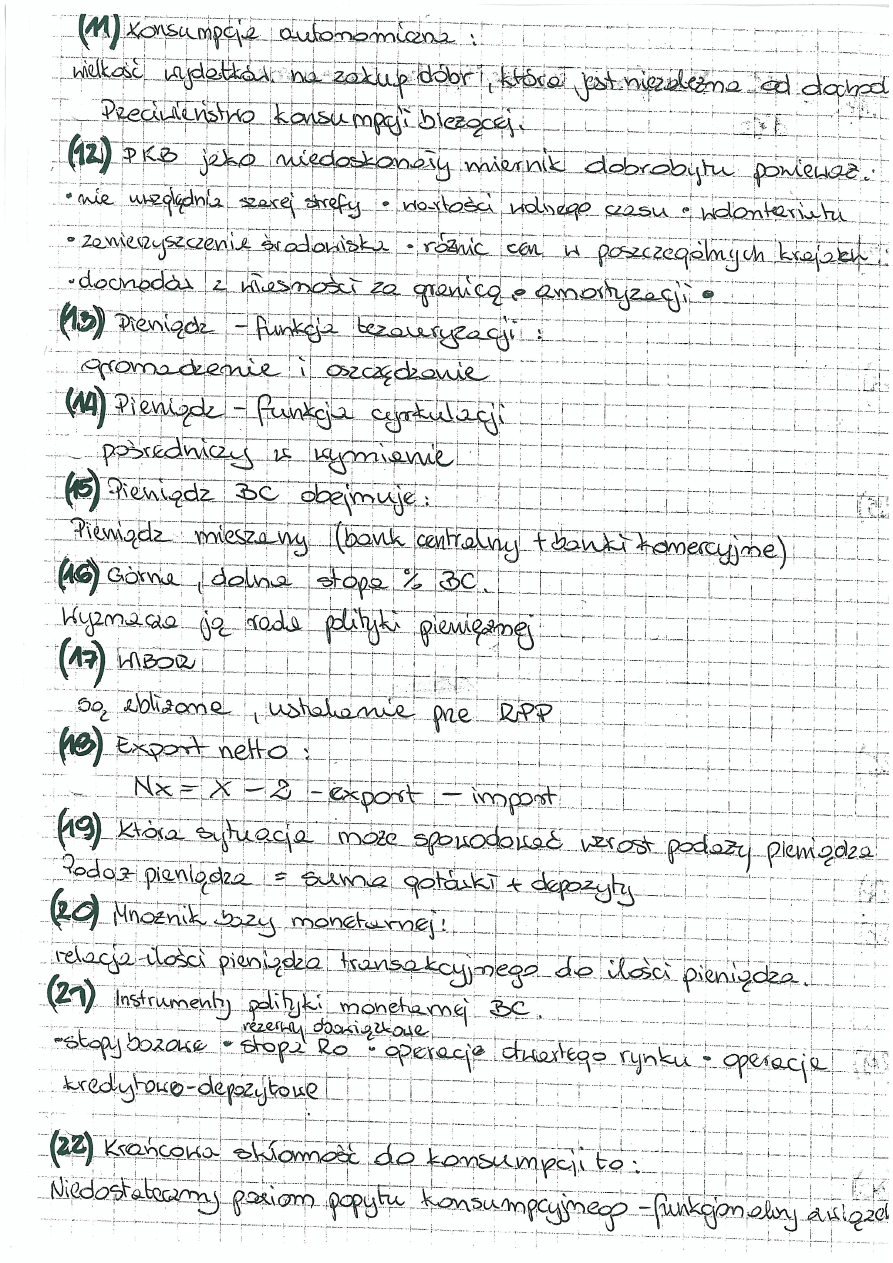 (11) Konsumpcja autonomiczna :
wielkość wydatków na zakup dóbr, która jest niezależna od dochod
Przeciwieństwo konsumpcji bieżącej.
(12) PKB jako niedoskonały miernik dobrobytu ponieważ:
• nie uwzględnia szarej strefy • wartości wolnego czasu • wolontariatu
• zanieczyszczenie środowiska • różnic cen w poszczególnych krajach
• dochodów z własności za granicą • amortyzacji •
(13) Pieniądz – funkcja tezauryzacji :
gromadzenie i oszczędzanie
(14) Pieniądz – funkcja cyrkulacji
pośredniczy w wymianie
(15) Pieniądz BC obejmuje:
Pieniądz mieszany (bank centralny + banki komercyjne)
(16) Górna, dolna stopa % BC.
Wyznacza ją rada polityki pieniężnej
(17) WIBOR
są zbliżone, ustalanie prze RPP
(18) Export netto :
Nx = X – Z – export – import
(19) Która sytuacja może spowodować wzrost podaży pieniądza
Podaż pieniądza = suma gotówki + depozyty
(20) Mnożnik bazy monetarnej:
relacja ilości pieniądza transakcyjnego do ilości pieniądza.
(21) Instrumenty polityki monetarnej BC.
rezerwy obowiązkowe
• stopy bazowe • stopa RO • operacje otwartego rynku • operacje
kredytowo-depozytowe
(22) Krańcowa skłonność do konsumpcji to:
Niedostateczny poziom popytu konsumpcyjnego – funkcjonalny związek